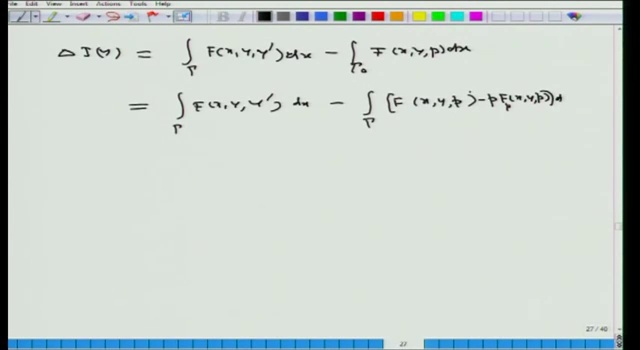 File View Insert Actions Tools Help
Δ J(Y) = ∫_Γ F(x,Y,Y')dx − ∫_Γ₀ F(x,Y,p)dx
= ∫_Γ F(x,Y,Y') dx − ∫_Γ [F(x,Y,p) − pF_p(x,Y,p)]d
27 / 40
27